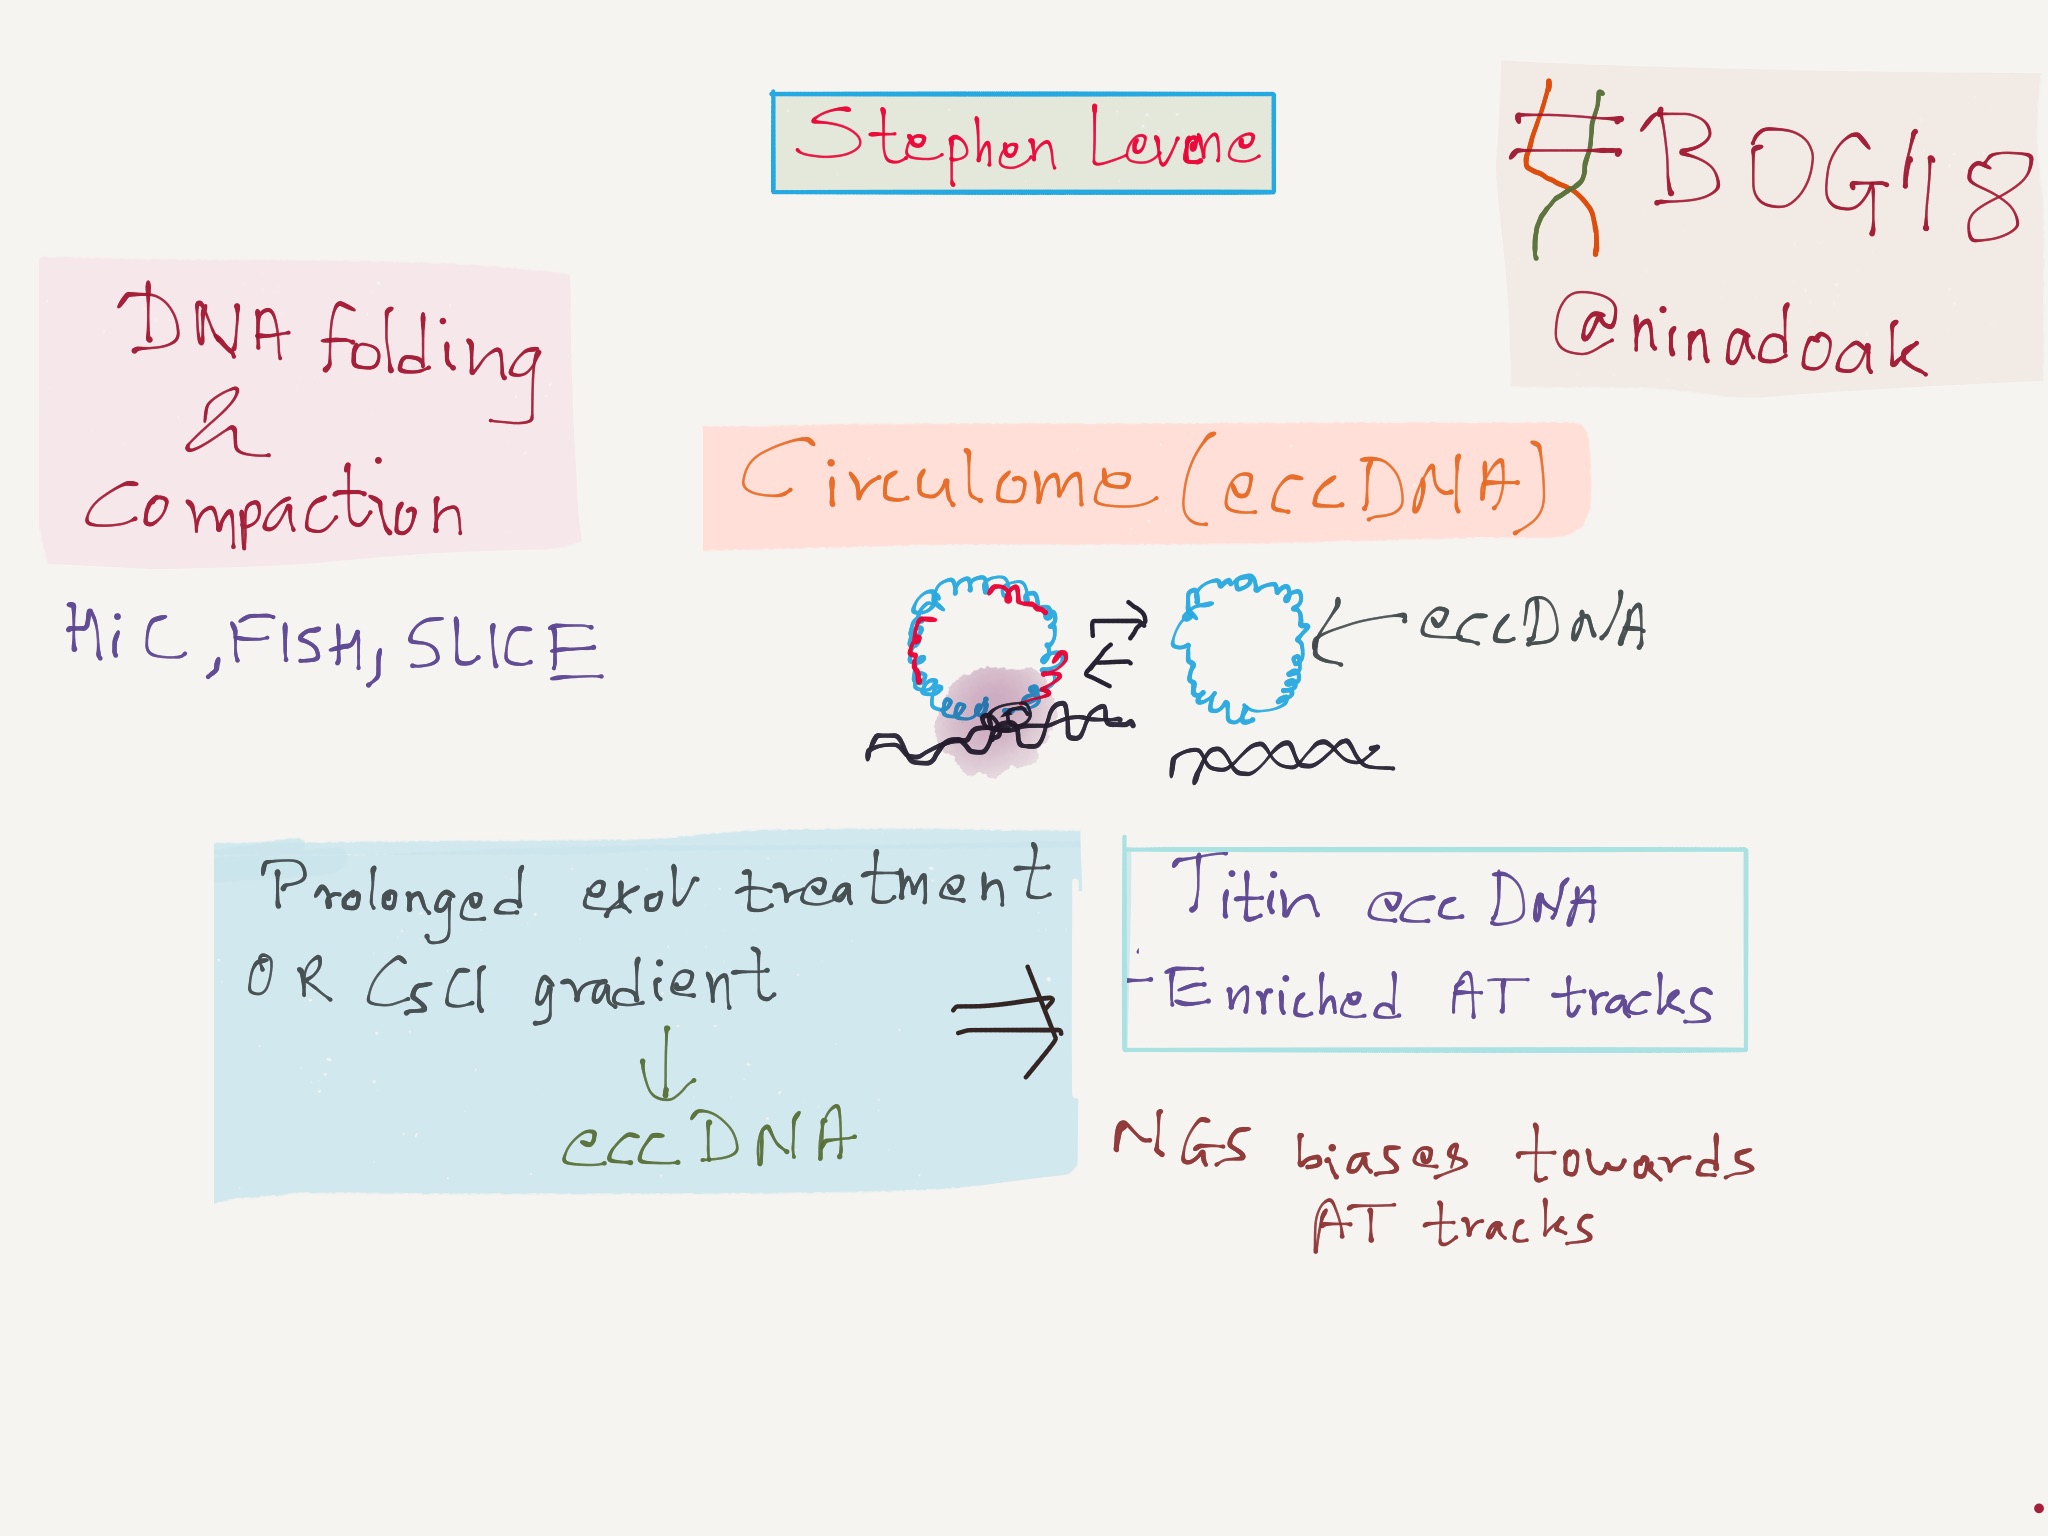 Stephen Levene
#BOG18
@ninadoak
DNA folding
&
Compaction
HiC, FISH, SLICE
Circulome (eccDNA)
eccDNA
Prolonged exoV treatment
OR CsCl gradient
eccDNA
Titin ecc DNA
- Enriched AT tracks
NGS biases towards
AT tracks